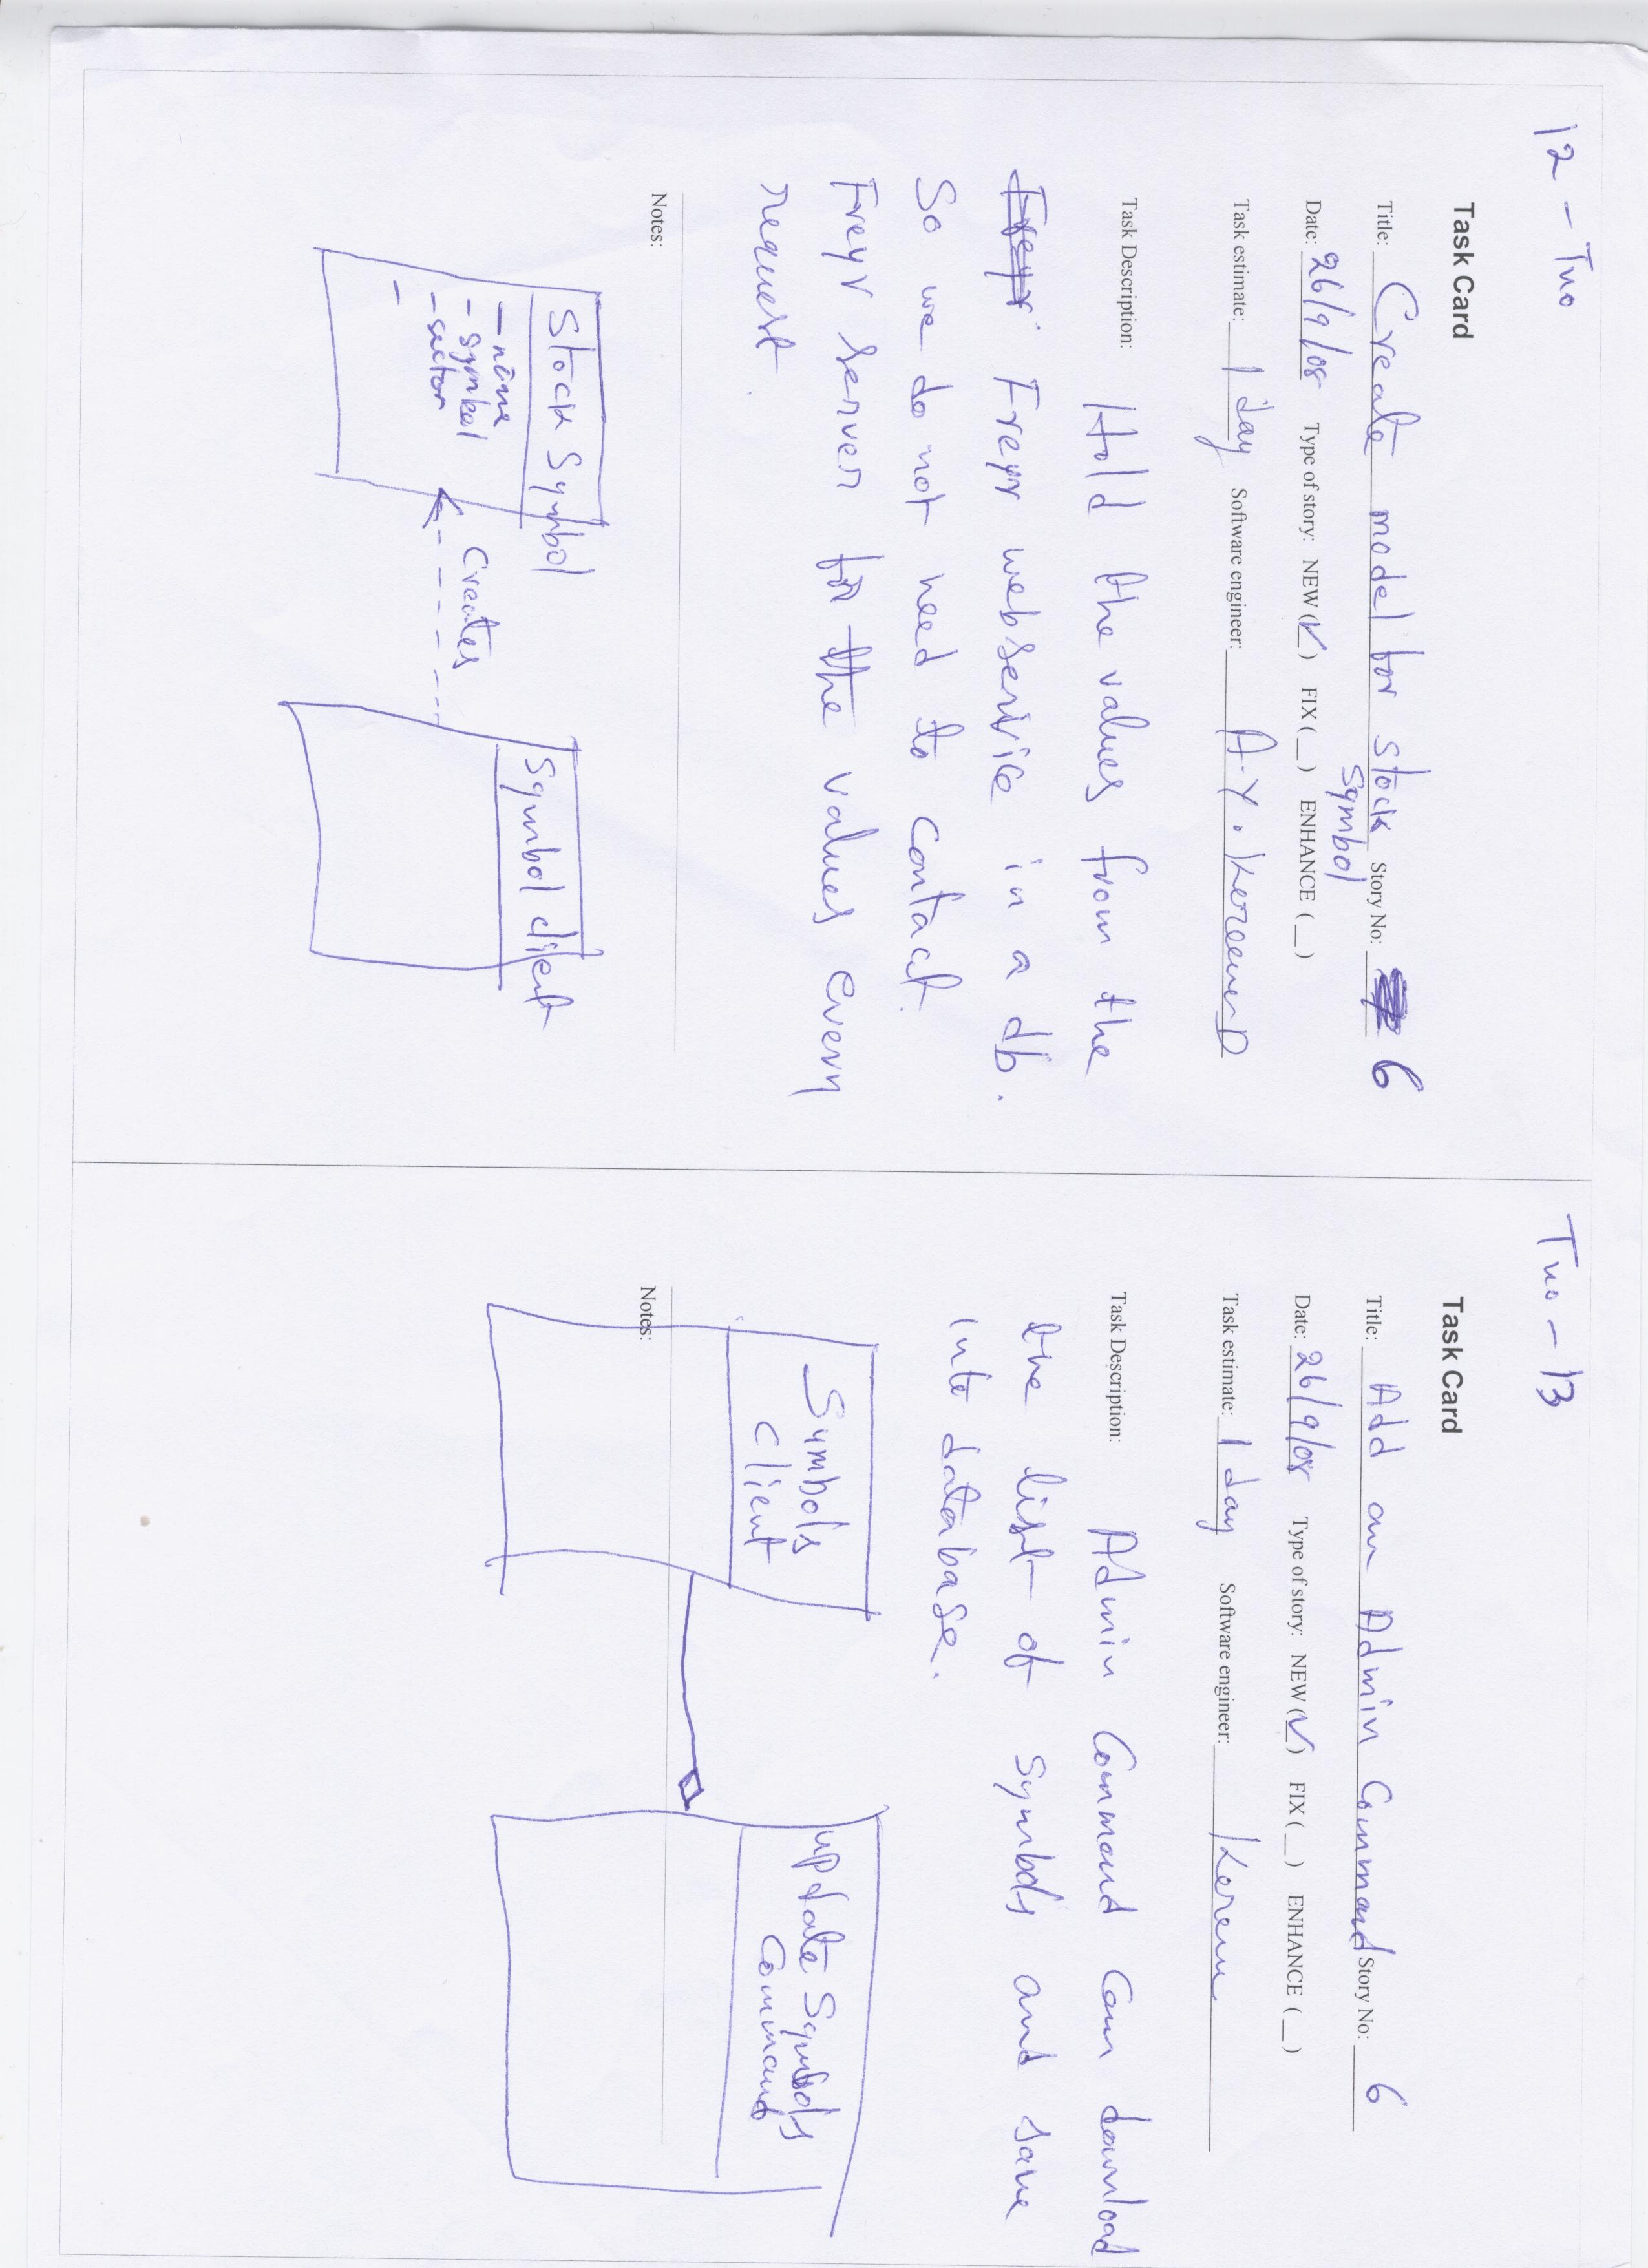 12 - Two
Task Card
Title: Create model for stock Symbol Story No: 6
Date: 26/9/08 Type of story: NEW (V) FIX (_) ENHANCE (_)
Task estimate: 1 day Software engineer: A.Y. Kerem D
Task Description: Hold the values from the
Freyr Freyr webservice in a db.
So we do not need to contact
Freyr server for the values every
request.
Notes:
Stock Symbol
- name
- symbol
- sector
-
Creates
Symbol client
Two - 13
Task Card
Title: Add an Admin Command Story No: 6
Date: 26/9/08 Type of story: NEW (V) FIX (_) ENHANCE (_)
Task estimate: 1 day Software engineer: Kerem
Task Description: Admin Command can download
the list of symbols and save
into database.
Notes:
Symbols
client
update Symbols
Command